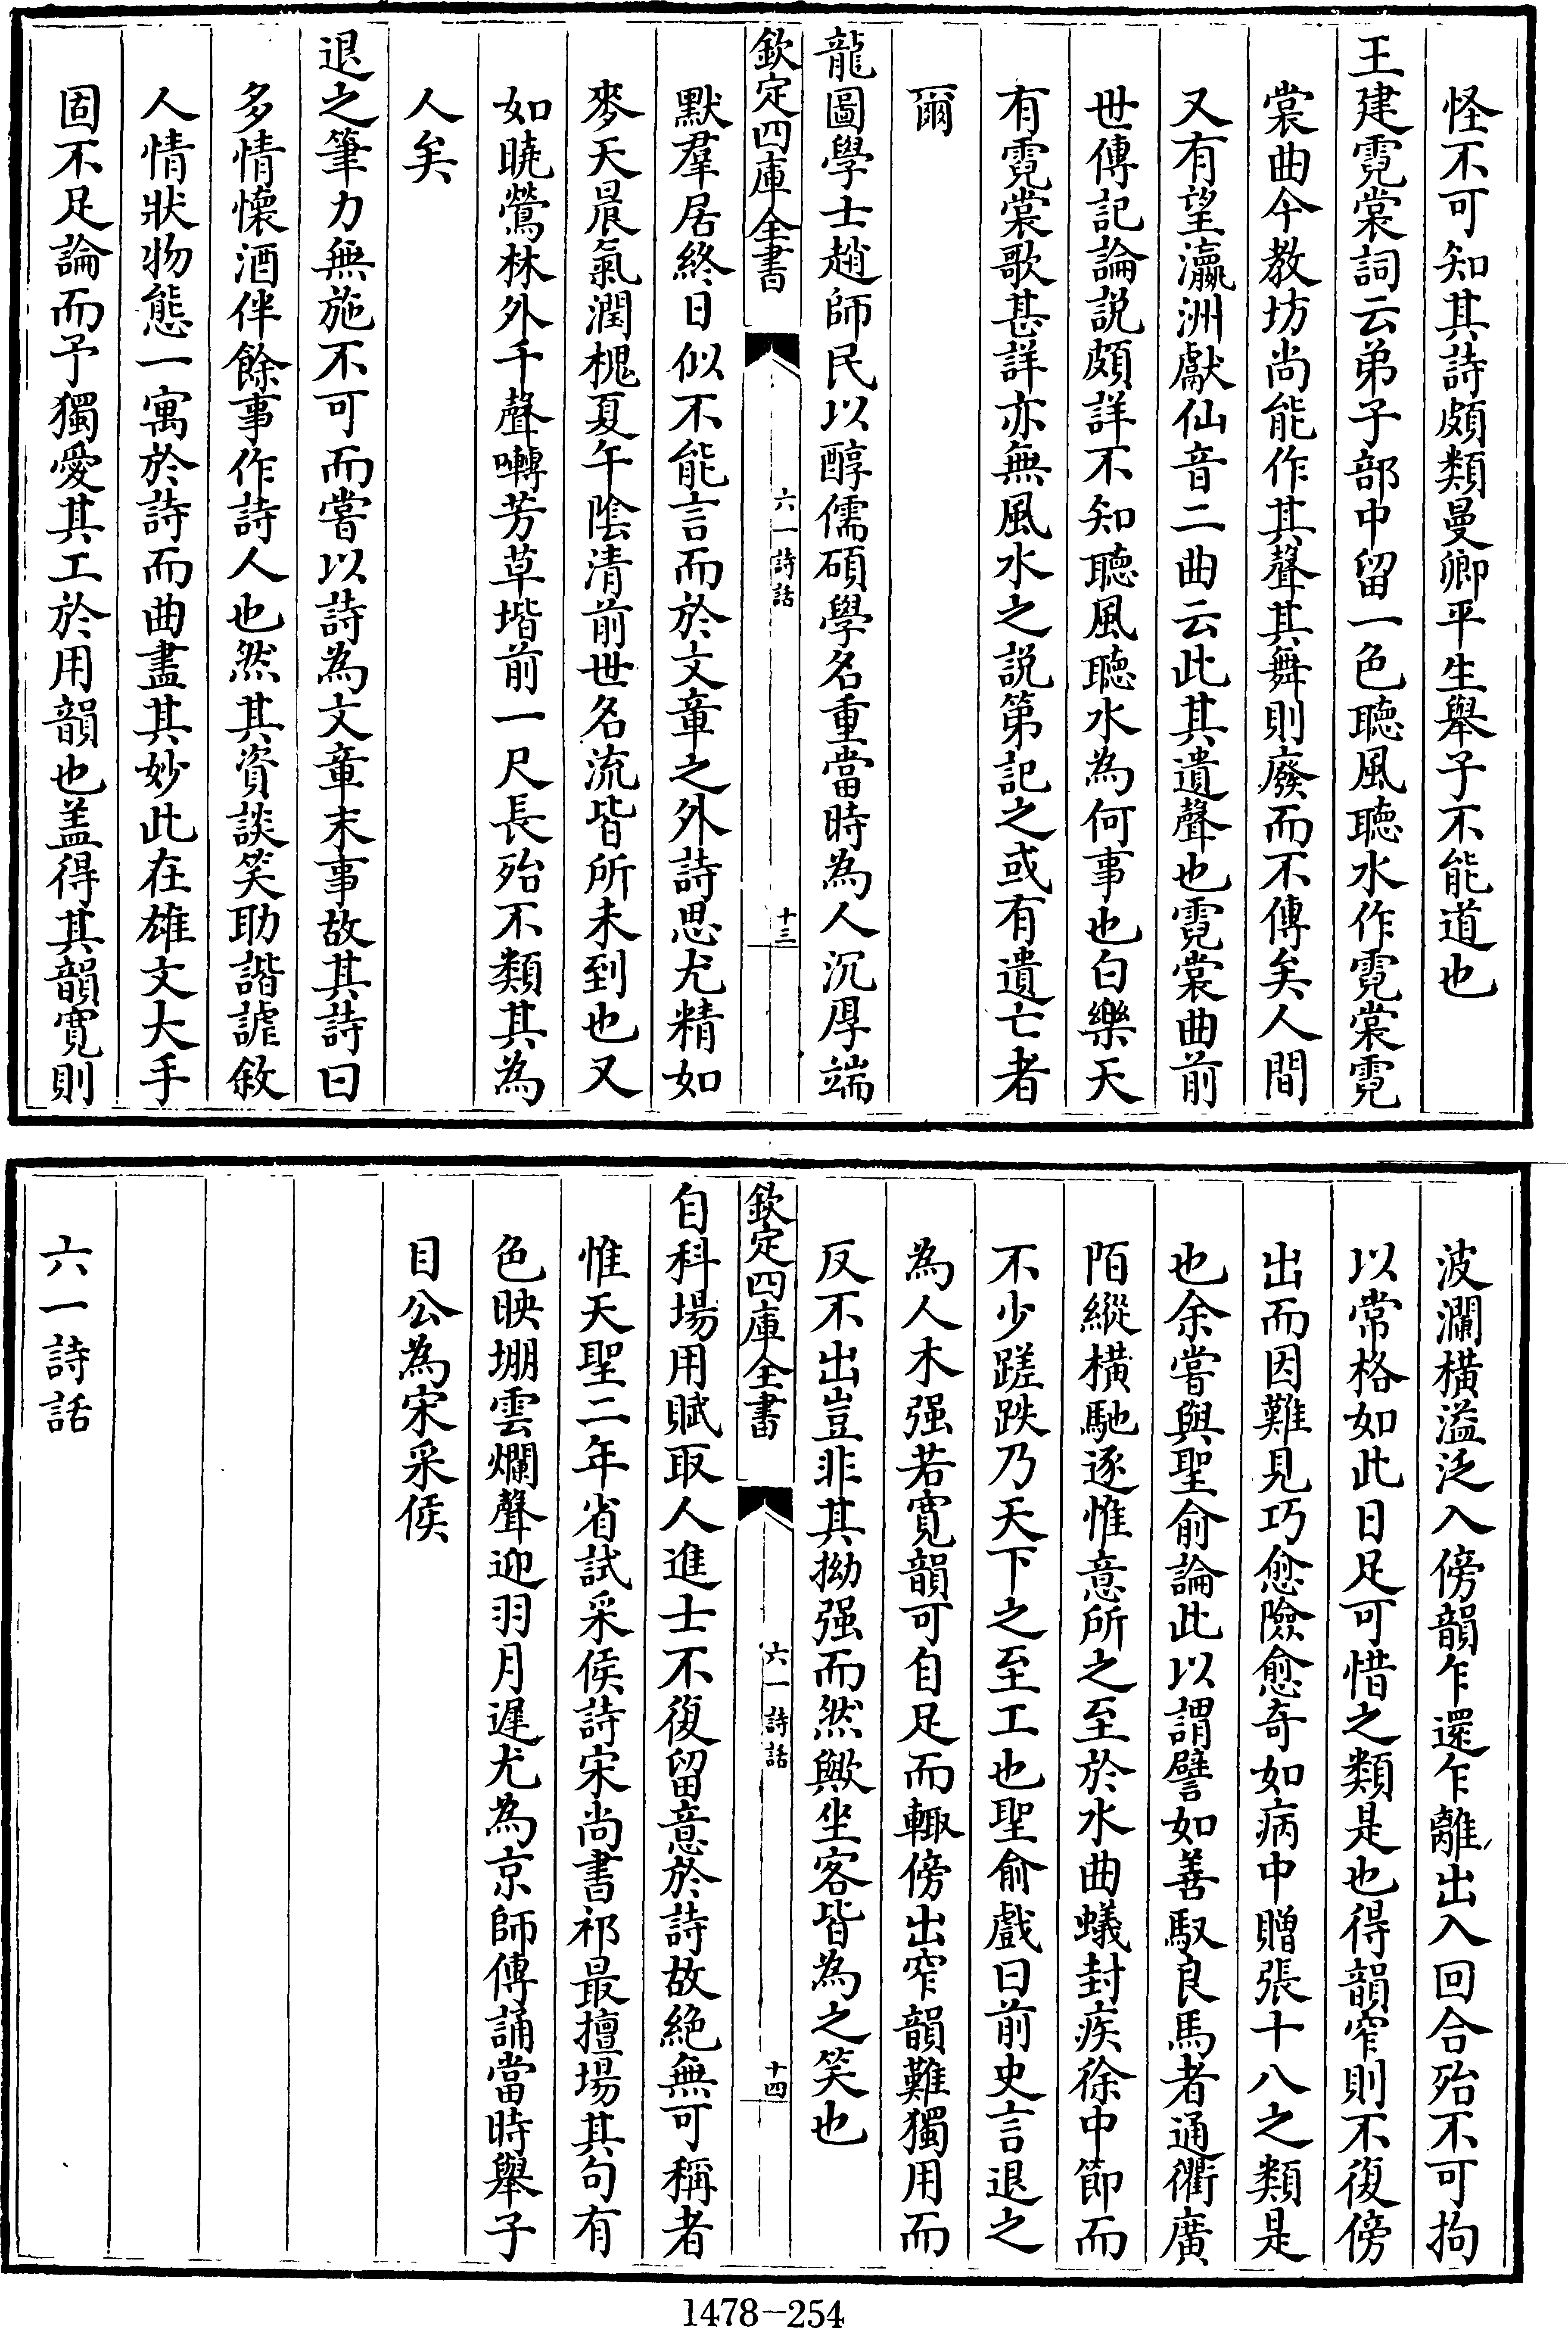 怪不可知其詩頗類曼卿平生舉子不能道也
王建霓裳詞云弟子部中留一色聽風聽水作霓裳霓
裳曲今教坊尚能作其聲其舞則廢而不傳矣人間
又有望瀛洲獻仙音二曲云此其遺聲也霓裳曲前
世傳記論説頗詳不知聽風聽水為何事也白樂天
有霓裳歌甚詳亦無風水之説第記之或有遺亡者
爾
龍圖學士趙師民以醇儒碩學名重當時為人沉厚端
欽定四庫全書
六一詩話
十三
默羣居終日似不能言而於文章之外詩思尤精如
麥天晨氣潤槐夏午陰清前世名流皆所未到也又
如曉鶯林外千聲囀芳草堦前一尺長殆不類其為
人矣
退之筆力無施不可而嘗以詩為文章末事故其詩曰
多情懷酒伴餘事作詩人也然其資談笑助諧謔敘
人情狀物態一寓於詩而曲盡其妙此在雄文大手
固不足論而予獨愛其工於用韻也盖得其韻寛則
波瀾橫溢泛入傍韻乍還乍離出入回合殆不可拘
以常格如此日足可惜之類是也得韻窄則不復傍
出而因難見巧愈險愈奇如病中贈張十八之類是
也余嘗與聖俞論此以謂譬如善馭良馬者通衢廣
陌縱橫馳逐惟意所之至於水曲蟻封疾徐中節而
不少蹉跌乃天下之至工也聖俞戲曰前史言退之
為人木强若寛韻可自足而輒傍出窄韻難獨用而
反不出豈非其拗强而然歟坐客皆為之笑也
欽定四庫全書
六一詩話
十四
自科場用賦取人進士不復留意於詩故絶無可稱者
惟天聖二年省試采侯詩宋尚書祁最擅場其句有
色映堋雲爛聲迎羽月遲尤為京師傳誦當時舉子
目公為宋采侯
六一詩話
1478-254